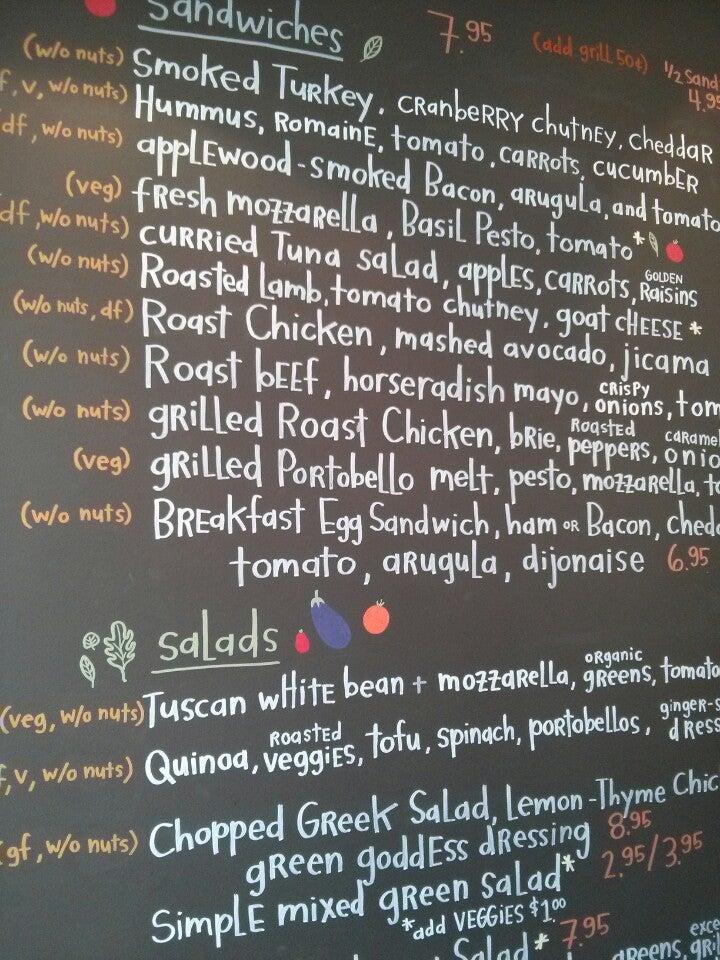 Sandwiches 7.95 (add grill 50¢) 1/2 Sand
4.95
(w/o nuts) Smoked Turkey, cranberry chutney, cheddar
f, v, w/o nuts) Hummus, romaine, tomato, carrots, cucumber
df, w/o nuts) applewood-smoked Bacon, arugula, and tomato
(veg) fresh mozzarella, Basil Pesto, tomato*
df, w/o nuts) curried Tuna salad, apples, carrots, golden raisins
(w/o nuts) Roasted Lamb, tomato chutney, goat cheese *
(w/o nuts, df) Roast Chicken, mashed avocado, jicama
(w/o nuts) Roast beef, horseradish mayo, crispy onions, tom
(w/o nuts) grilled Roast Chicken, brie, roasted peppers, caramel onio
(veg) grilled Portobello melt, pesto, mozzarella, to
(w/o nuts) Breakfast Egg Sandwich, ham or Bacon, chedd
tomato, arugula, dijonaise 6.95
salads
(veg, w/o nuts) Tuscan white bean + mozzarella, organic greens, tomato
f, v, w/o nuts) Quinoa, roasted veggies, tofu, spinach, portobellos, ginger-s dress
(gf, w/o nuts) Chopped Greek Salad, Lemon-Thyme Chic
green goddess dressing 8.95
Simple mixed green salad* 2.95/3.95
*add veggies $1.00
Salad* 7.95 greens, gril
exce